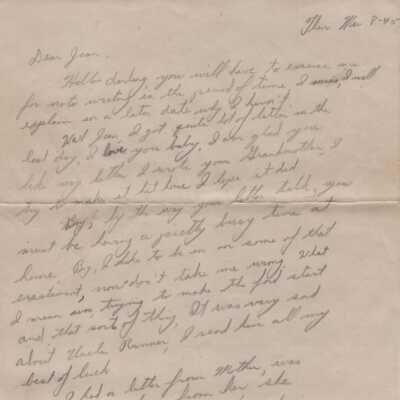 Dear Jean,
Hello darling, you will have to excuse me
for not writing in the period of time, I will
explain on a later date why I haven't
Well Jean, I got quite lot of letter in the
last day, I love you baby, I am glad you
like my letter I wrote your Grandmother, I
try to make it hit home I hope it did
by the way your letter talk, you
must be having a pretty busy time at
home. By, I like to be in on some of that
now don't take me wrong. What
I mean trying to make the fast start
and that sort of thing. It was very sad
about Uncle I send him all my
best of luck
I had a letter from Mother, was
from her she